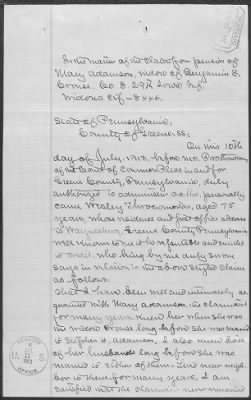 In the matter of the claim for pension of
Mary Adamson, widow of Benjamin F.
Crouse, Co. G. 29th Iowa Inf.
Widows Ctf - 8446.
State of Pennsylvania,
County of Greene, SS;
On this 10th
day of July, 1913, before me, Prothonotary
of the Court of Common Pleas in and for
Greene County, Pennsylvania, duly
authorized to administer oaths, personally
came Wesley Throckmorton, aged 75
years, whose residence and post office address
is Waynesburg, Greene County Pennsylvania
well known to me to be reputable and entitled
to credit, who being by me duly sworn
says in relation to the above entitled claim
as follows:
That I have been well and intimately ac-
quainted with Mary Adamson, the claimant
for many years, knew her when she was
the widow Crouse long before she was married
to Stephen H. Adamson, I also knew both
of her husbands long before she was
married to either of them. Lived near neigh-
bor to them for many years, I am
satisfied that the claimant never married
U. S.
OFFICE